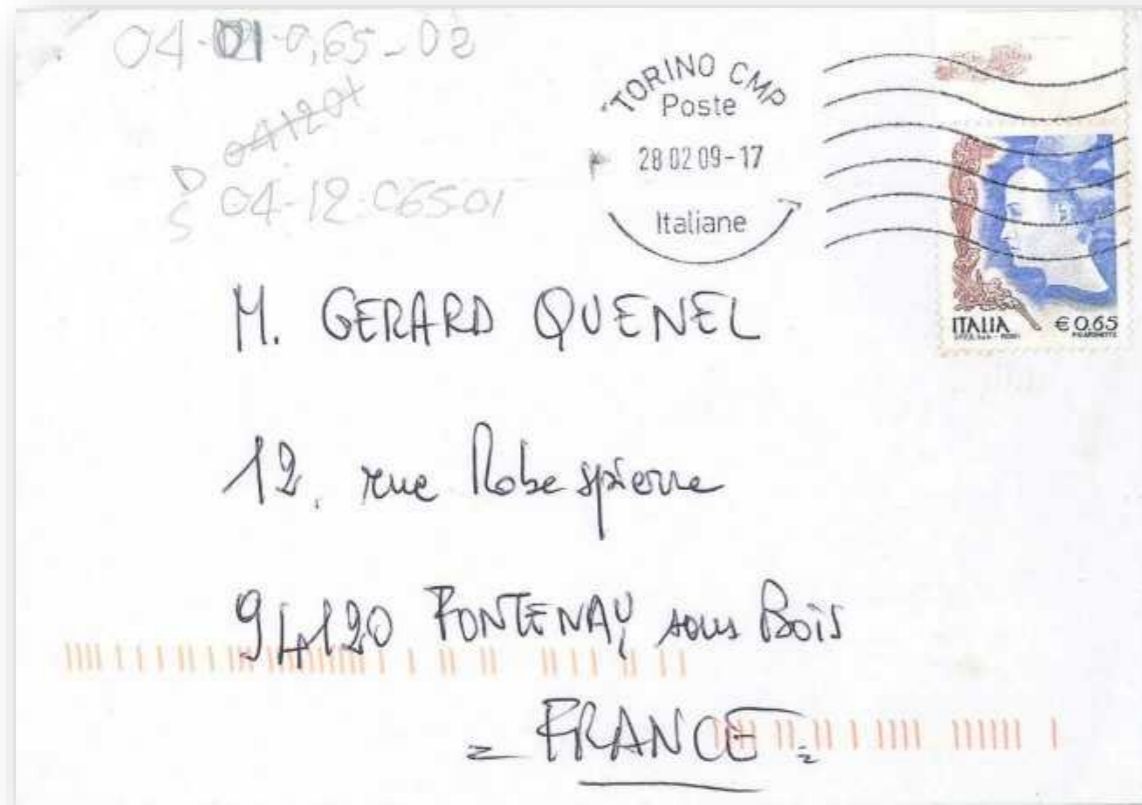 04-01-0,65-02
041201
D
S 04-12-06501
TORINO CMP
Poste
28 02 09-17
Italiane
ITALIA
€ 0.65
M. GERARD QUENEL
12, rue Robespierre
94120 FONTENAY sous Bois
- FRANCE -